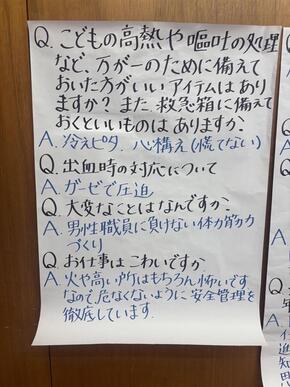 Q. こどもの高熱や嘔吐の処理
など、万が一のために備えて
おいた方がいいアイテムはあり
ますか？また救急箱に備えて
おくといいものはありますか。
A. 冷えピタ、心構え(慌てない)
Q. 出血時の対応について
A. ガーゼで圧迫
Q. 大変なことはなんですか。
A. 男性職員に負けない体力筋力
づくり
Q. お仕事はこわいですか
A. 火や高い所はもちろん怖いです
なので、危なくないように安全管理を
徹底しています。